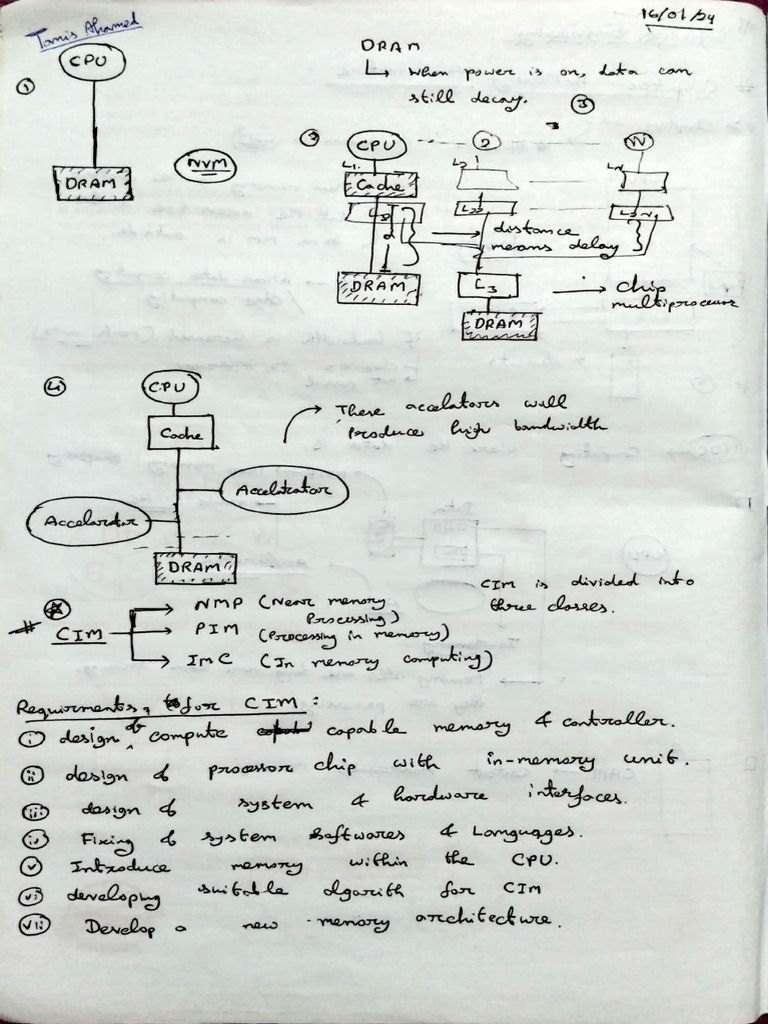 16/01/24
Tanis Ahamed
DRAM
↳ when power is on, data can
still decay.
①
CPU
DRAM
NVM
③
②
CPU
②
N
L1
Cache
L2
DRAM
distance
means delay
L3
DRAM
→ chip
multiprocessor
④
CPU
Cache
Acceletrator
Accelerator
DRAM
These accelators will
produce high bandwidth
# CIM
NMP (Near memory
Processing)
PIM (Processing in memory)
ImC (In memory computing)
CIM is divided into
three classes.
Requirments, for CIM :
i design of compute capable memory & controller.
ii design of processor chip with in-memory unit.
iii design of system & hardware interfaces.
iv Fixing of system softwares & Languages.
v Introduce memory within the CPU.
vi developing suitable algorith for CIM
vii Develop a new memory architecture.